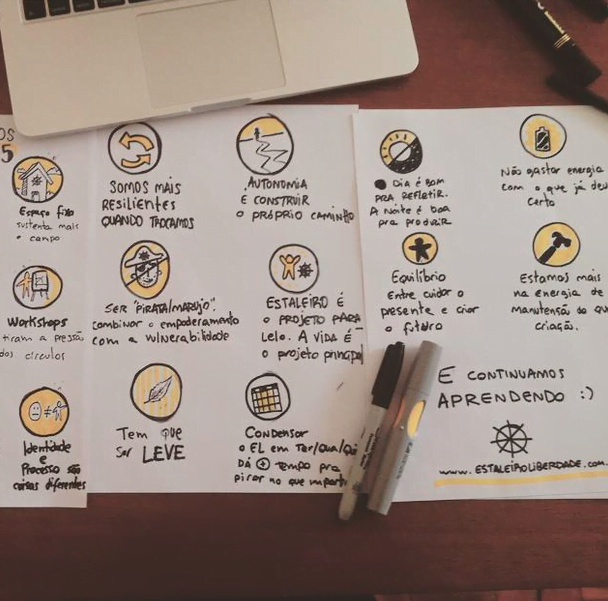 OS
5
Espaço fixo
sustenta mais
o campo
Workshops
tiram a pressão
dos círculos
Identidade
e
Processo são
coisas diferentes
SOMOS MAIS
RESILIENTES
QUANDO TROCAMOS
SER "PIRATA/MARUJO".
combinar o empoderamento
com a vulnerabilidade
Tem que
ser LEVE
AUTONOMIA
E CONSTRUIR
O PRÓPRIO CAMINHO
ESTALEIRO É
O PROJETO PARA-
LELO. A VIDA É
o projeto principal
Condensar
o EL em Ter/Qua/Qui
DÁ + tempo pra
pirar no que importa
DIA É BOM
PRA REFLETIR.
A Noite é boa
pra produzir
Equilíbrio
Entre cuidar o
presente e criar
o futuro
Não gastar energia
com o que já deu
certo
Estamos mais
na energia de
manutenção do que
criação.
E CONTINUAMOS
APRENDENDO :)
www.ESTALEIROLIBERDADE.com